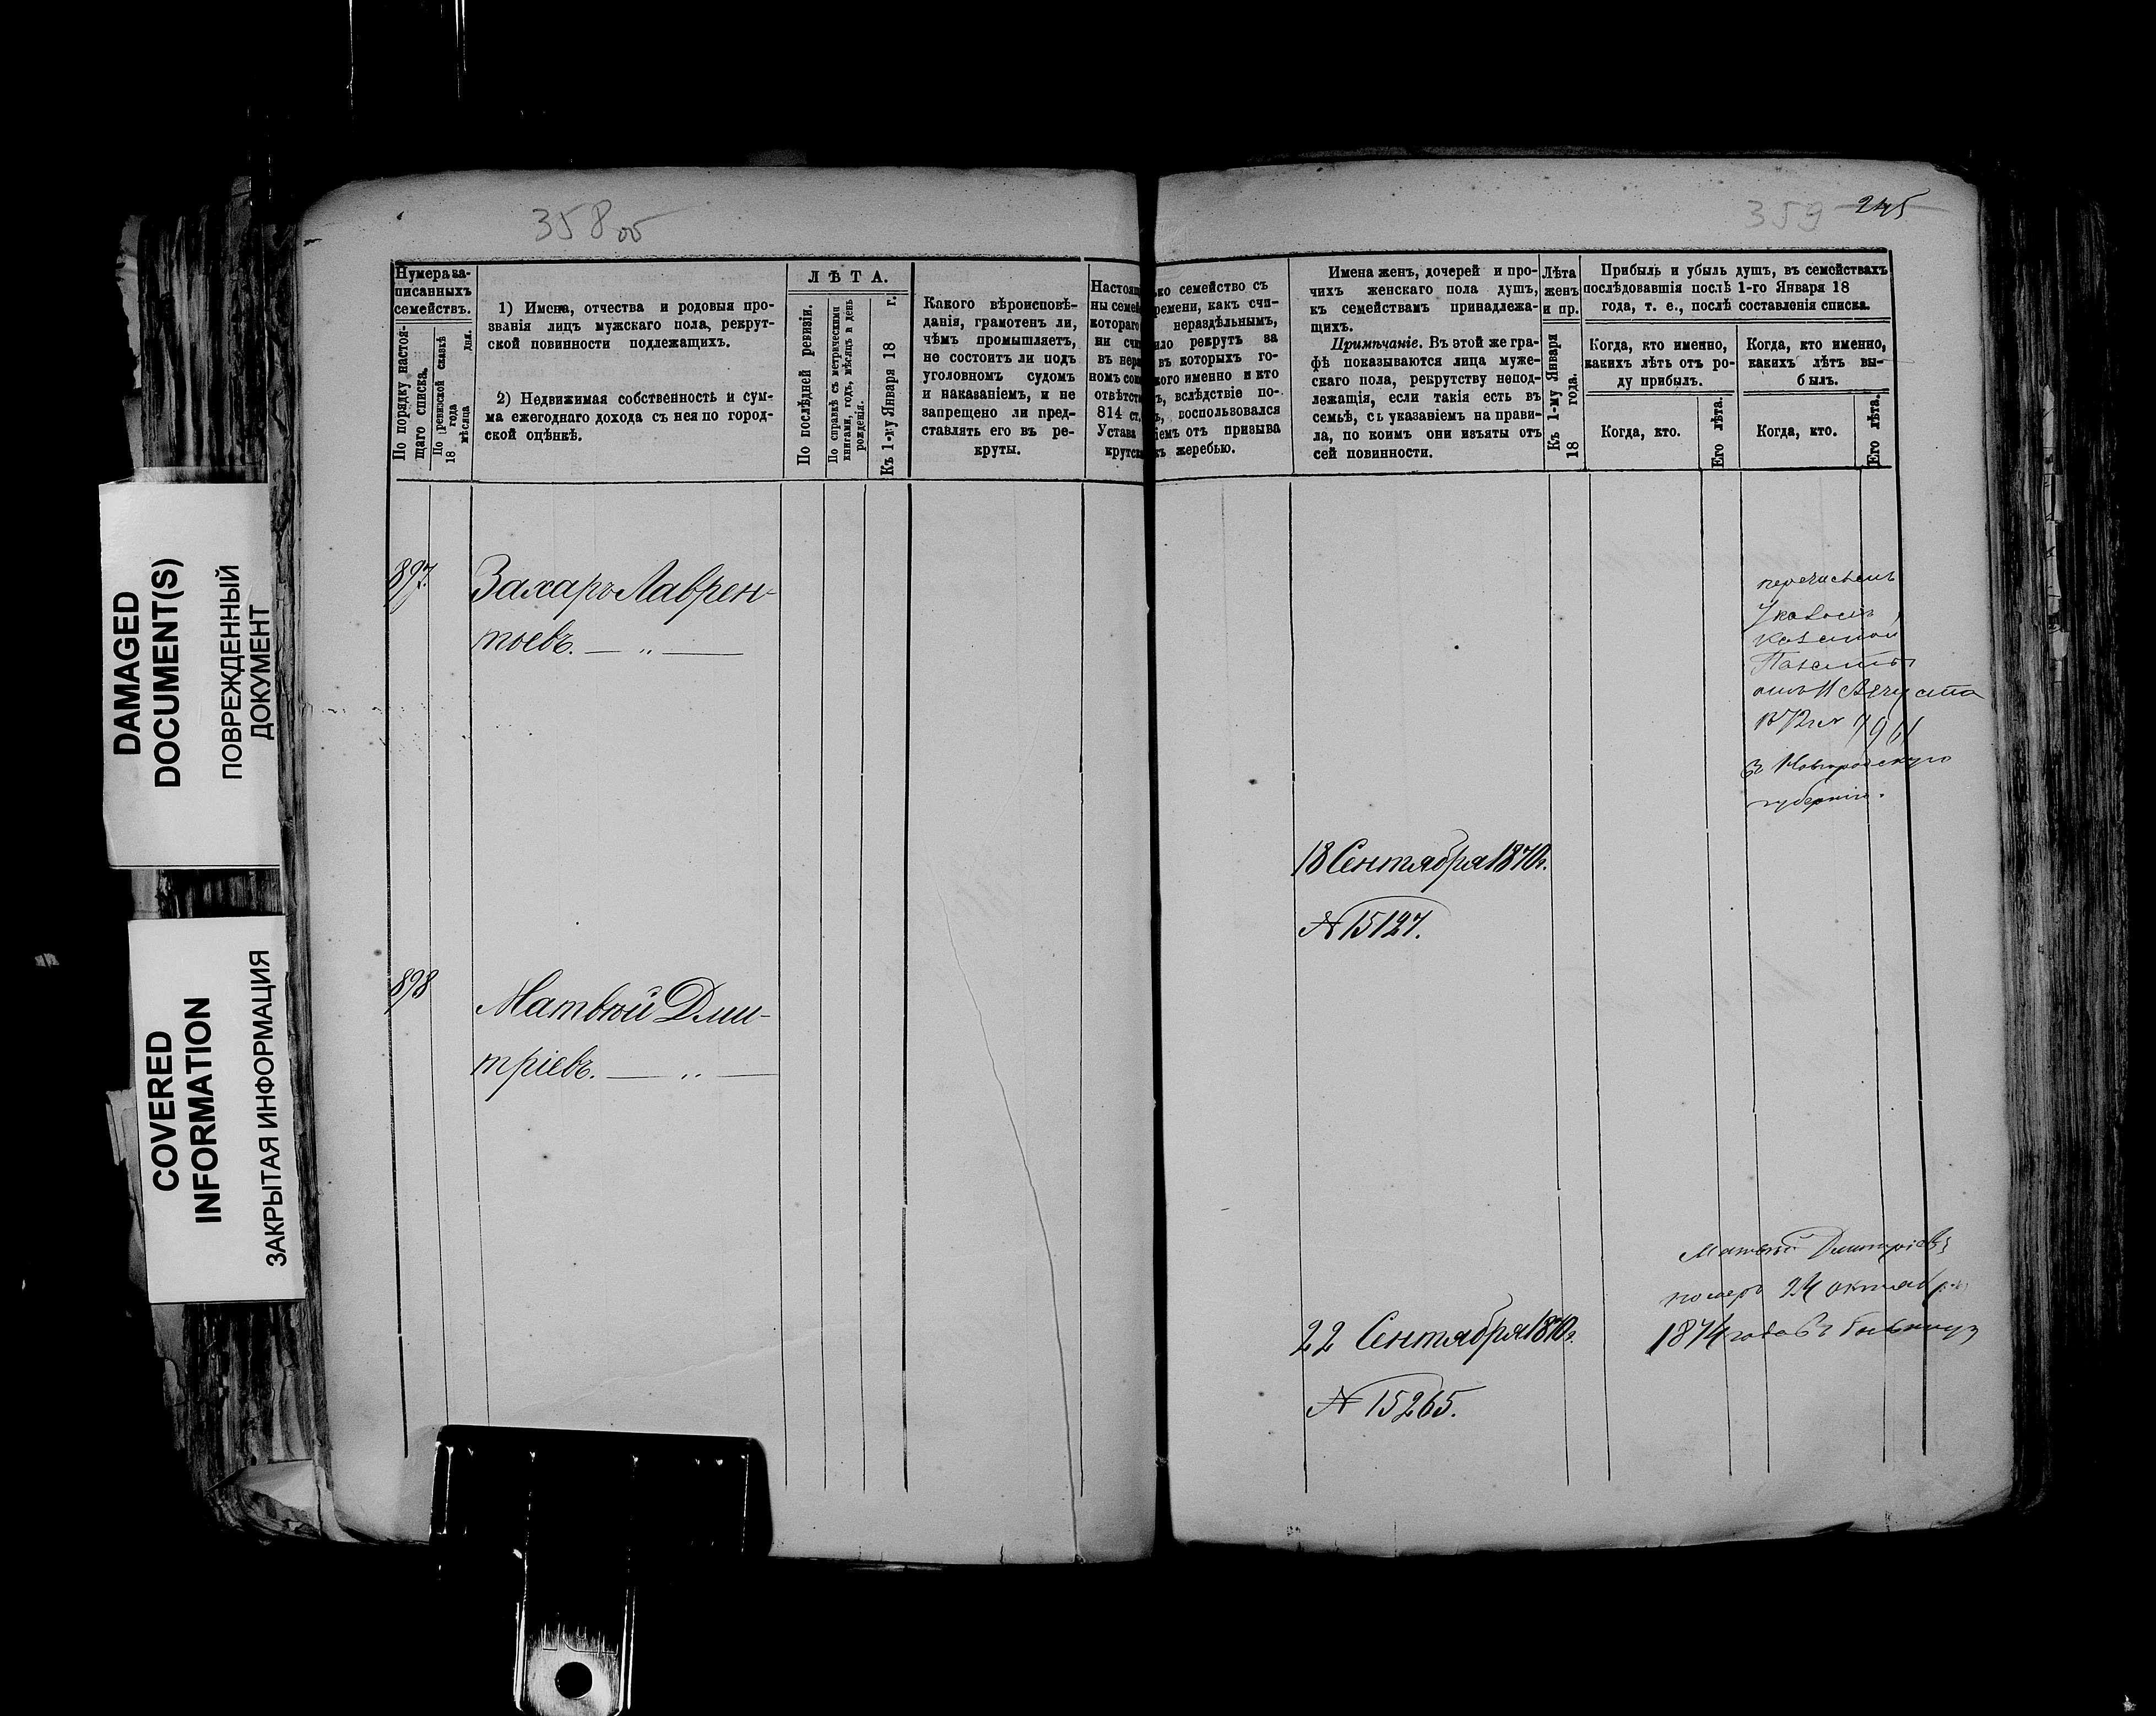 358 об
359 245
DAMAGED
DOCUMENT(S)
ПОВРЕЖДЕННЫЙ
ДОКУМЕНТ
COVERED
INFORMATION
ЗАКРЫТАЯ ИНФОРМАЦИЯ
Нумера за-
писанныхъ
семействъ.
По порядку настоя-
щаго списка.
По ревизской сказкѣ
18 года
мѣсяца дня.
1) Имена, отчества и родовыя про-
званія лицъ мужскаго пола, рекрут-
ской повинности подлежащихъ.
2) Недвижимая собственность и сум-
ма ежегоднаго дохода съ нея по город-
ской оцѣнкѣ.
ЛѢТА.
По послѣдней ревизіи.
По справкѣ съ метрическими
книгами, годъ, мѣсяцъ и день
рожденія.
Къ 1-му Января 18 г.
Какого вѣроисповѣ-
данія, грамотенъ ли,
чѣмъ промышляетъ,
не состоитъ ли подъ
уголовномъ судомъ
и наказаніемъ, и не
запрещено ли пред-
ставлять его въ ре-
круты.
Настоящ
ны семей
котораго
ни счит
въ нера
номъ сос
отвѣтств
814 ст.
Устава
крутск
ко семейство съ
ремени, какъ счи-
нераздѣльнымъ,
ило рекрутъ за
въ которыхъ го-
кого именно и кто
ъ, вслѣдствіе по-
ь, воспользовался
іемъ отъ призыва
къ жеребью.
Имена женъ, дочерей и про-
чихъ женскаго пола душъ,
къ семействамъ принадлежа-
щихъ.
Примѣчаніе. Въ этой же гра-
фѣ показываются лица муже-
скаго пола, рекрутству непод-
лежащія, если такія есть въ
семьѣ, съ указаніемъ на прави-
ла, по коимъ они изъяты отъ
сей повинности.
Лѣта
женъ
и пр.
Къ 1-му Января
18 года.
Прибыль и убыль душъ, въ семействахъ
послѣдовавшія послѣ 1-го Января 18
года, т. е., послѣ составленія списка.
Когда, кто именно,
какихъ лѣтъ отъ ро-
ду прибылъ.
Когда, кто именно,
какихъ лѣтъ вы-
былъ.
Когда, кто.
Его лѣта.
Когда, кто.
Его лѣта.
897.
Захаръ Лаврен-
тьевъ. — „ —
перечисленъ
Указомъ
Казенной
Палаты
отъ 11 Августа
1872 г № 7961
въ Новгородскую
губернію.
18 Сентября 1870 г.
№ 15127.
898
Матвѣй Дми-
тріевъ. — „ —
22 Сентября 1870 г.
№ 15265.
Матвѣй Дмитріевъ
померъ 24 октября
1874 года въ больницѣ